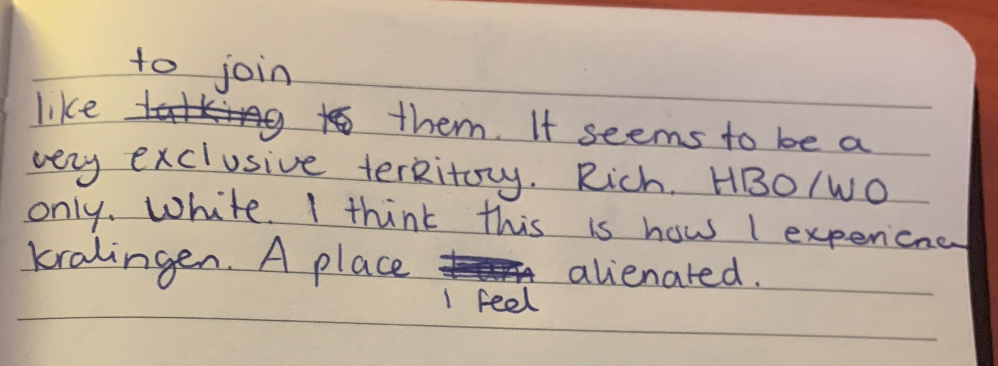 to join
like talking to them. It seems to be a
very exclusive terRitory. Rich. HBO/WO
only. White. I think this is how I experience
kralingen. A place alienated.
I feel